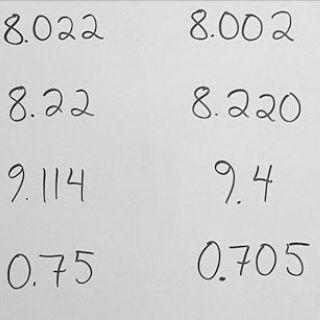 8.022 8.002
8.22 8.220
9.114 9.4
0.75 0.705